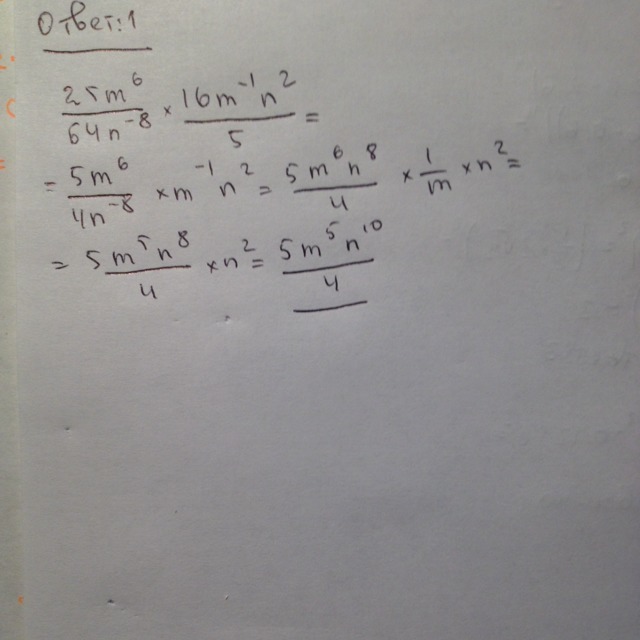 Ответ:1
25m⁶/64n⁻⁸ × 16m⁻¹n²/5 =
= 5m⁶/4n⁻⁸ × m⁻¹ n² = 5m⁶n⁸/4 × 1/m × n² =
= 5m⁵n⁸/4 × n² = 5m⁵n¹⁰/4